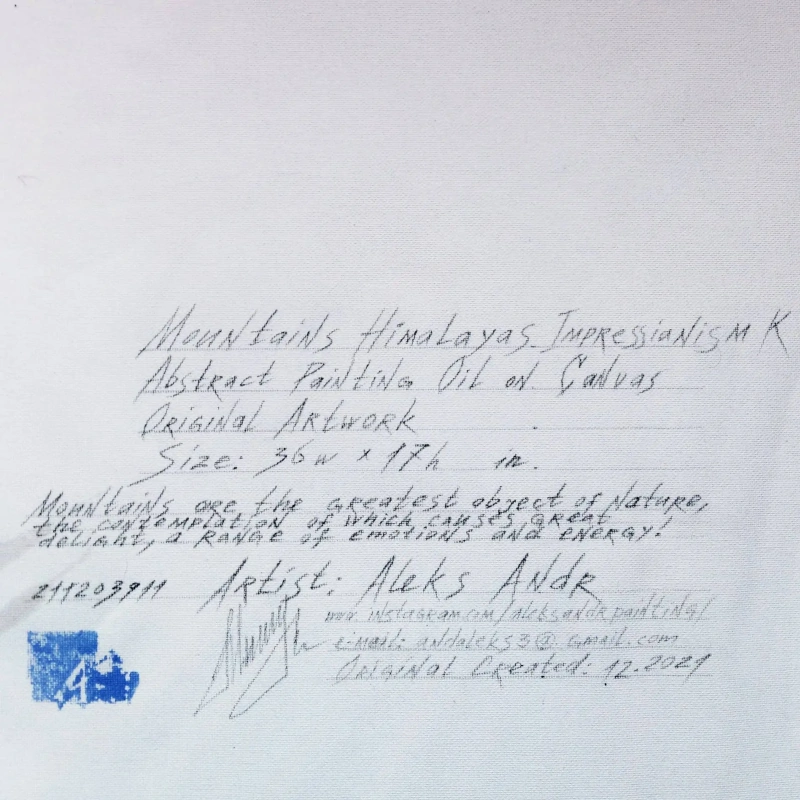 Mountains Himalayas Impressianism K
Abstract Painting Oil on Canvas
Original Artwork
Size: 36w x 17h in.
Mountains are the greatest object of Nature,
the contemplation of which causes great
delight, a range of emotions and energy!
211203911 Artist: Aleks Andr
www.instagram.com/aleksandrpainting/
e-mail: andaleks3@gmail.com
Original Created: 12.2021